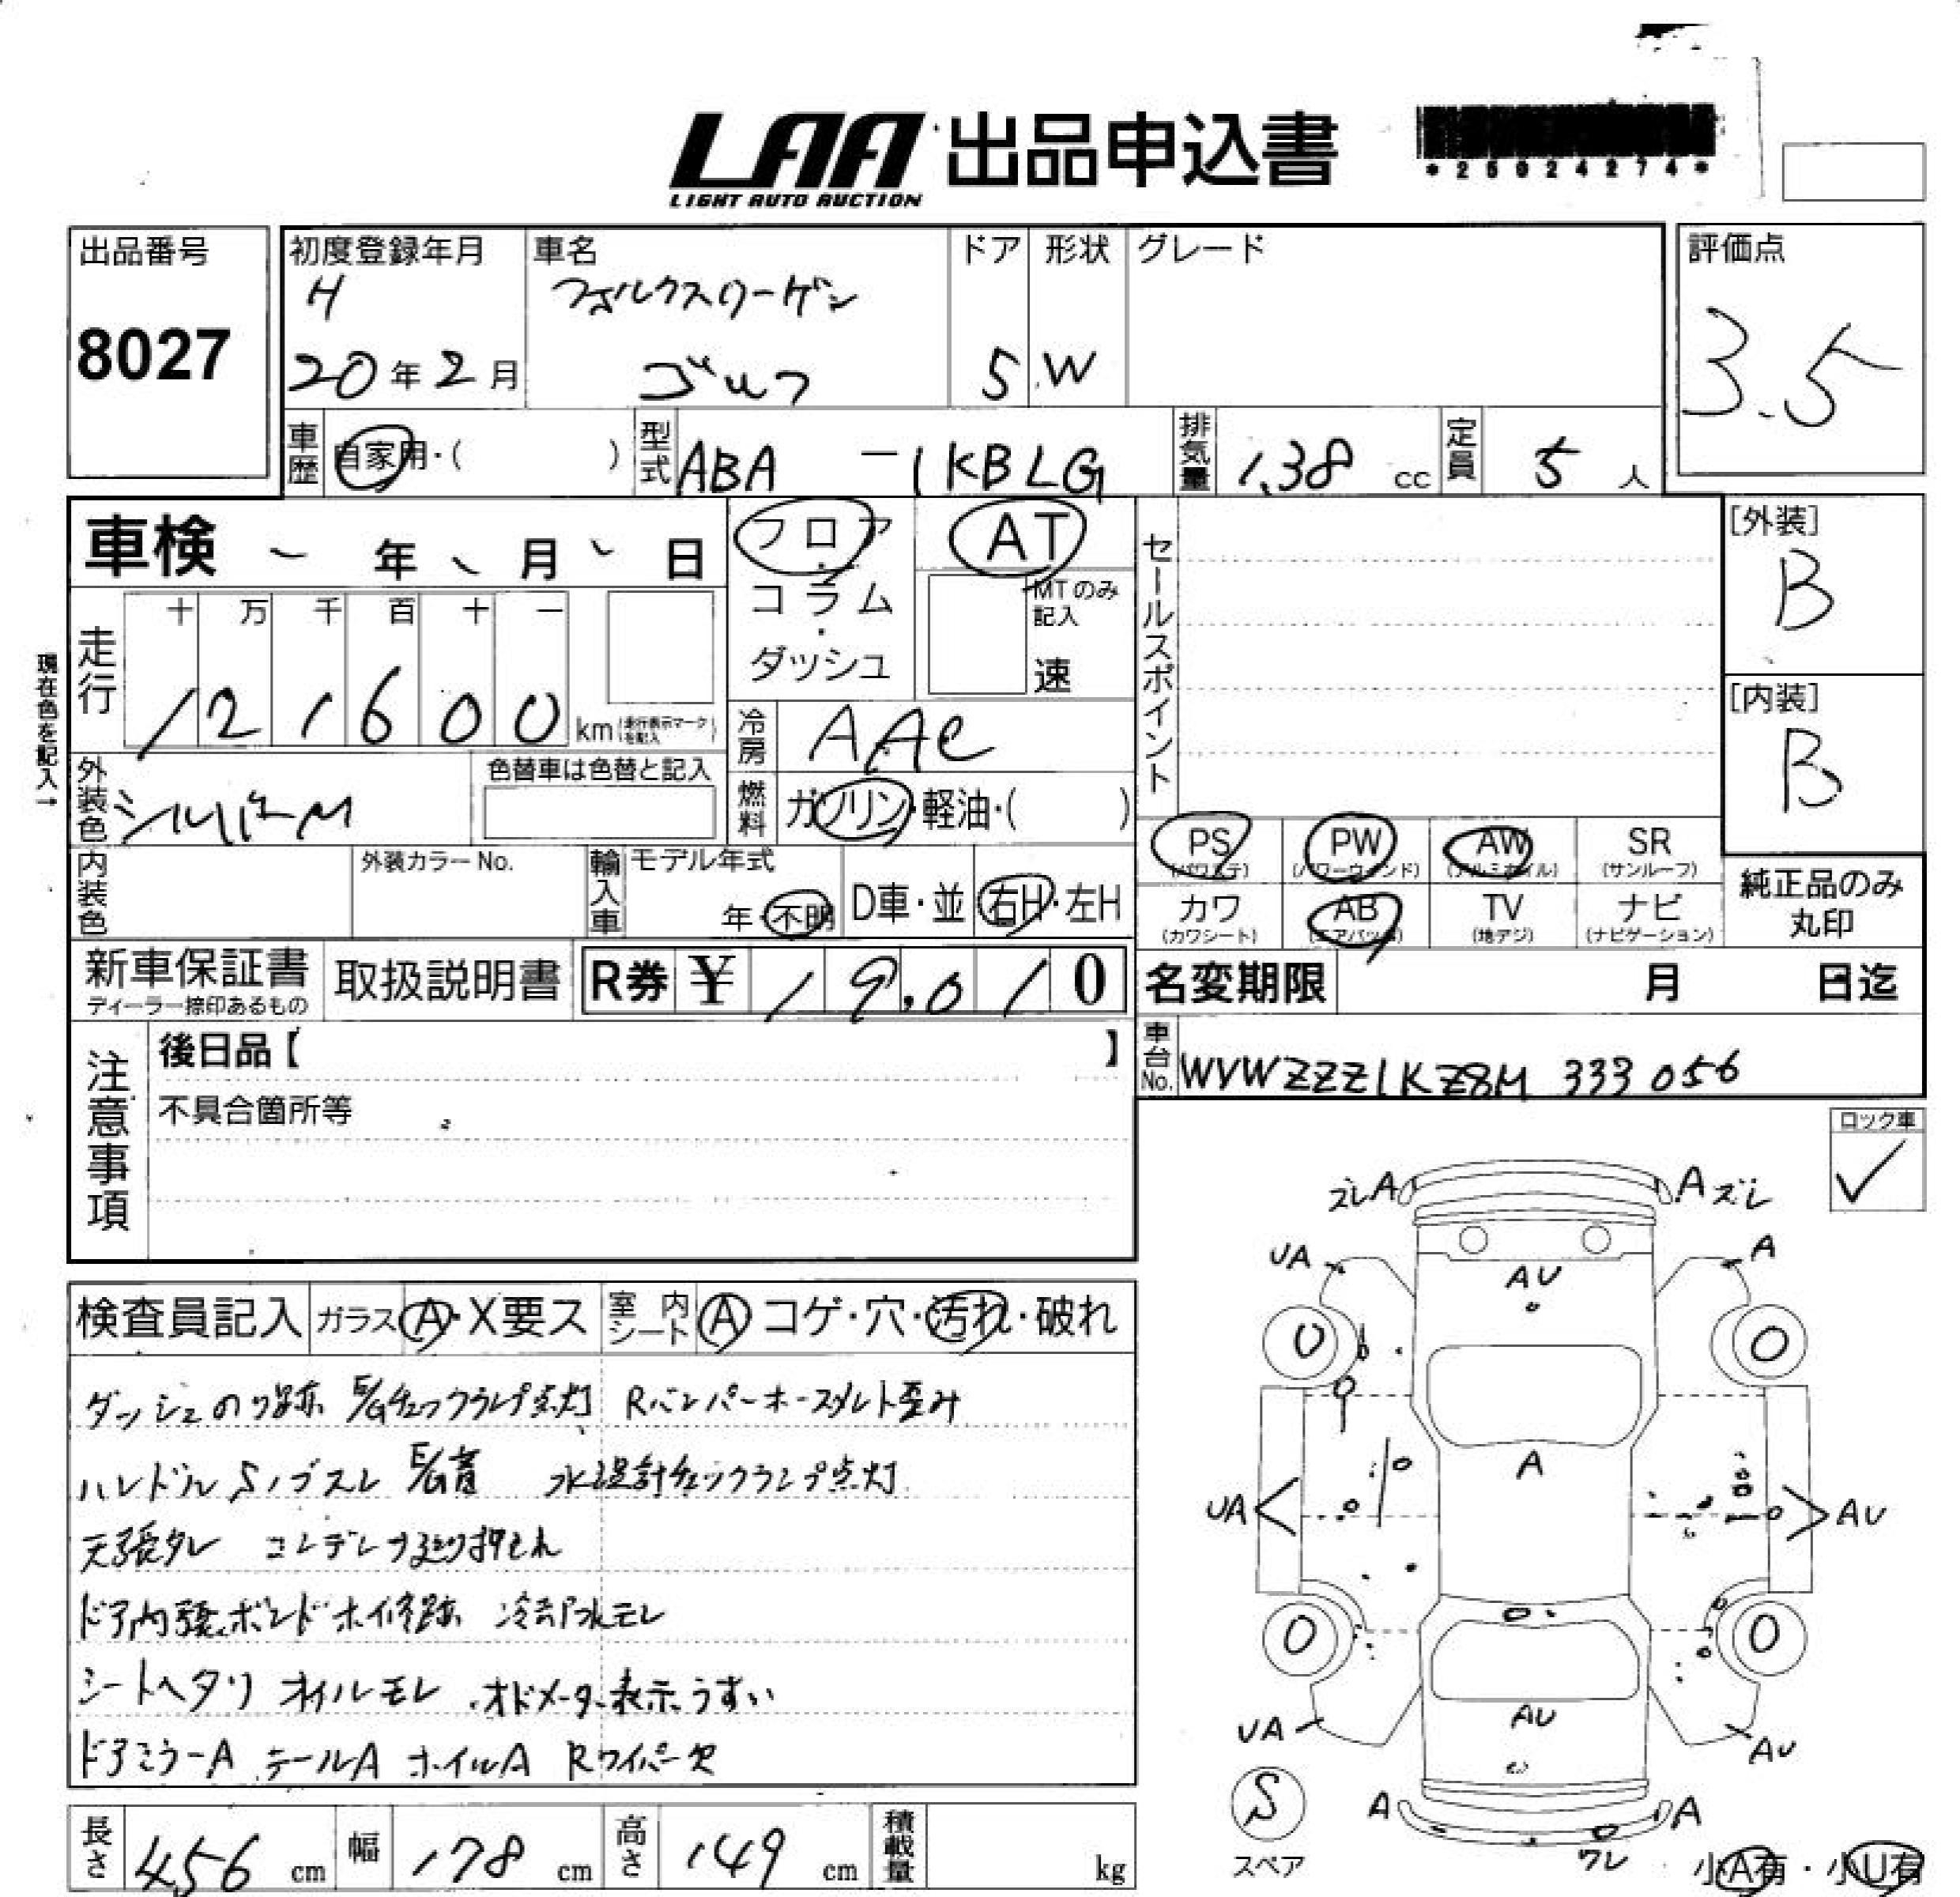 LAA 出品申込書
LIGHT AUTO AUCTION
*25024274*
出品番号
8027
初度登録年月
H
20年2月
車名
フォルクスワーゲン
ゴルフ
ドア
5
形状
W
グレード
評価点
3.5
車歴 自家用・( )
型式 ABA -1KBLG
排気量 1.38 cc
定員 5 人
車検 年 月 日
フロア・コラム・ダッシュ
AT
MTのみ記入
速
セールスポイント
[外装]
B
[内装]
B
現在色を記入→
走行
十 万 千 百 十 一
1 2 1 6 0 0 km (走行表示マークを記入)
冷房 AAC
外装色 シルバーM
色替車は色替と記入
燃料 ガソリン・軽油・( )
内装色
外装カラーNo.
輸入車
モデル年式
年・不明
D車・並
右H・左H
PS (パワステ)
PW (パワーウインド)
AW (アルミホイル)
SR (サンルーフ)
カワ (カワシート)
AB (エアバッグ)
TV (地デジ)
ナビ (ナビゲーション)
純正品のみ丸印
新車保証書
ディーラー捺印あるもの
取扱説明書
R券 ¥ 19.010
名変期限 月 日迄
車台No. WVWZZZ1KZ8M 333056
注意事項
後日品【 】
不具合箇所等
ロック車
✓
検査員記入
ガラス A・X要ス
室内シート A コゲ・穴・汚れ・破れ
ダッシュのり跡 E/Gチェックランプ点灯 Rバンパーホースメント歪み
ハンドルS ノブスレ E/G音 水温計チェックランプ点灯
天張タレ コンデンサ廻り押され
ドア内張ボンドホイ修跡 冷却水モレ
シートヘタリ オイルモレ オドメーター表示うすい
ドアミラーA テールA ホイルA Rワイパー欠
ズレA
Aズレ
UA
A
AU
A
UA
AU
UA
AU
AU
A
A
ワレ
S
スペア
小A有・小U有
長さ 456 cm
幅 178 cm
高さ 149 cm
積載量 kg